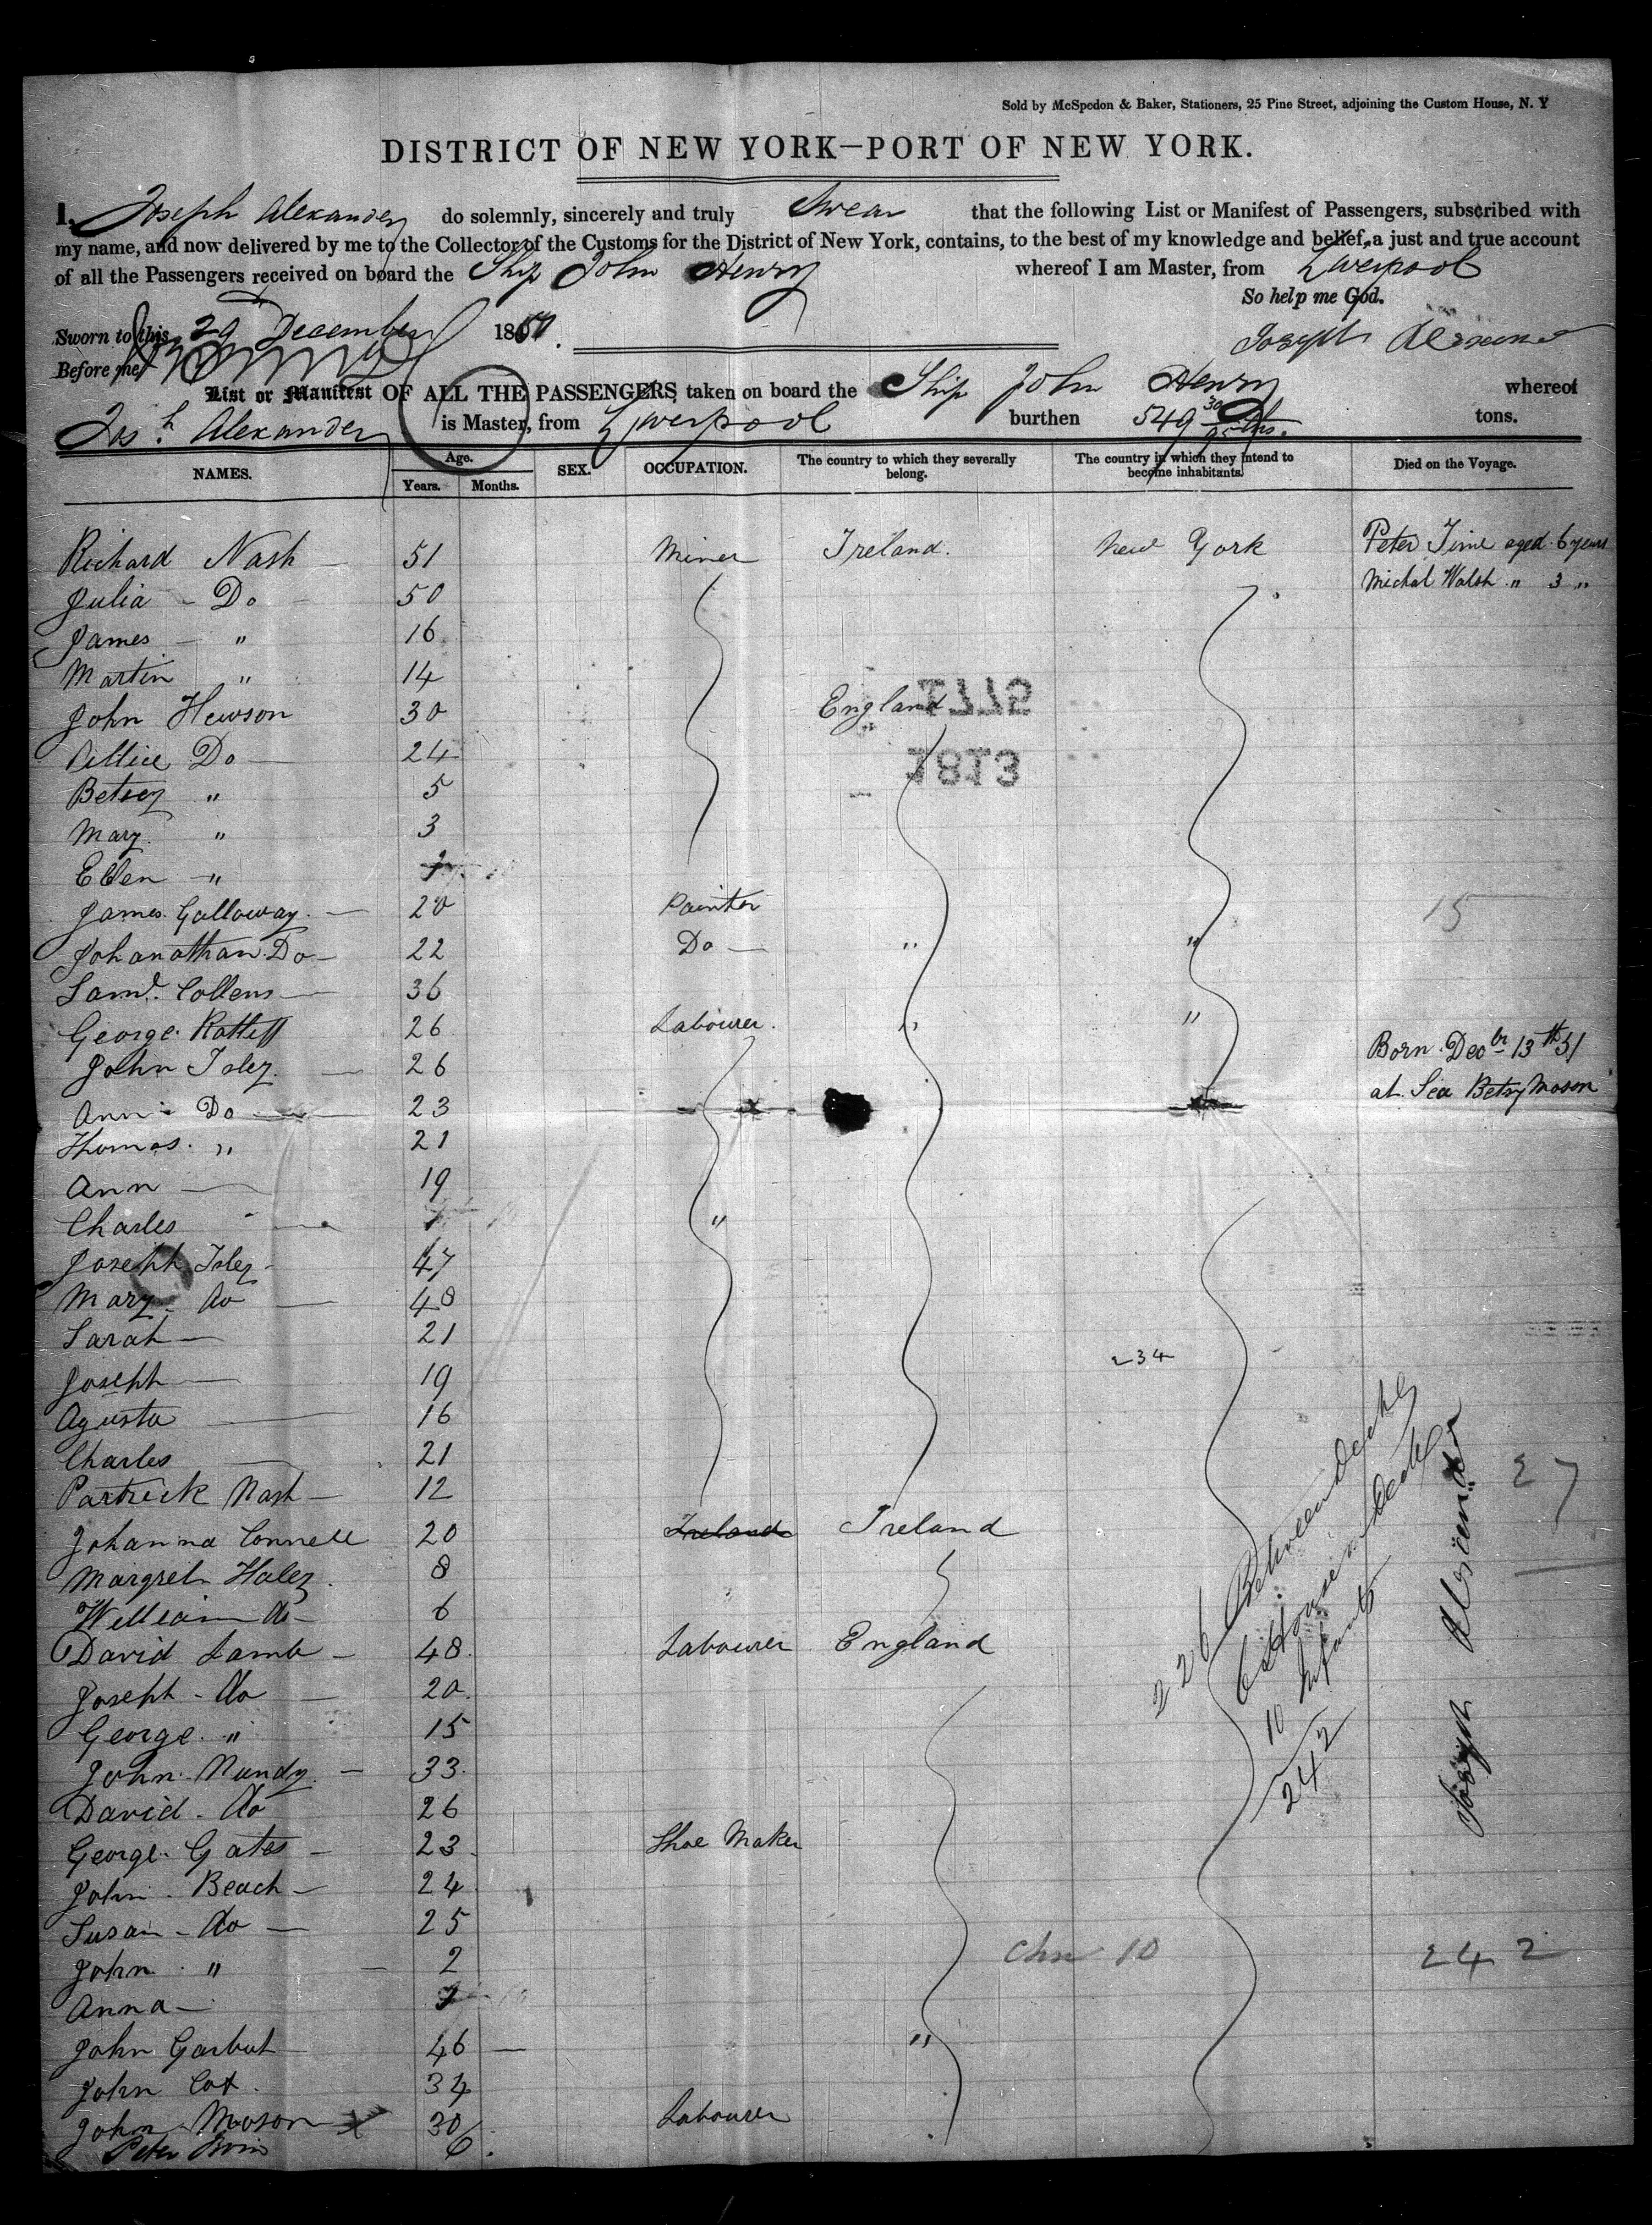 Sold by McSpedon & Baker, Stationers, 25 Pine Street, adjoining the Custom House, N. Y
DISTRICT OF NEW YORK—PORT OF NEW YORK.
I, Joseph Alexander do solemnly, sincerely and truly Swear that the following List or Manifest of Passengers, subscribed with
my name, and now delivered by me to the Collector of the Customs for the District of New York, contains, to the best of my knowledge and belief, a just and true account
of all the Passengers received on board the Ship John Henry whereof I am Master, from Liverpool
So help me God.
Sworn to this 29 December 1851. Joseph
Before me
List or Manifest OF ALL THE PASSENGERS taken on board the Ship John Henry whereof
Josh Alexander is Master, from Liverpool burthen 549 30/95 ths. tons.
NAMES. Age. SEX. OCCUPATION. The country to which they severally belong. The country in which they intend to become inhabitants. Died on the Voyage.
Years. Months.
Richard Nash 51 Miner Ireland. New York Peter aged 6 years
Julia Do 50 Michal Walsh " 3 "
James " 16
Martin " 14
1775
John Hewson 30 England
Do 24
1813
Betsey " 5
Mary " 3
Ellen "
James Galloway 20 Painter 15
Johanathan Do 22 Do " "
Saml. Collens 36
George 26 Labourer. " "
John Isley 26 Born Decbr 13th 51
Ann Do 23 at Sea Betsy Mason
Thomas " 21
Ann 19
Charles "
Joseph Isley 47
Mary Do 48
Sarah 21
Joseph 19 234
Agusta 16
Charles 21
Patrick Nash 12 27
Johanna Connell 20 Ireland Ireland
Margret Haley 8
William Do 6
David Lamb 48 Labourer England
Joseph Do 20
George " 15
John Mundy 33
David Do 26
226 Between decks
6 House on deck
10 Infants
242
Joseph
George Gates 23 Shoe Maker
John Beach 24
Susan Do 25
John " 2 Chn 10 242
Anna
John Garbut 46 "
John Cox 34
John Mason X 30 Labourer
Peter 6